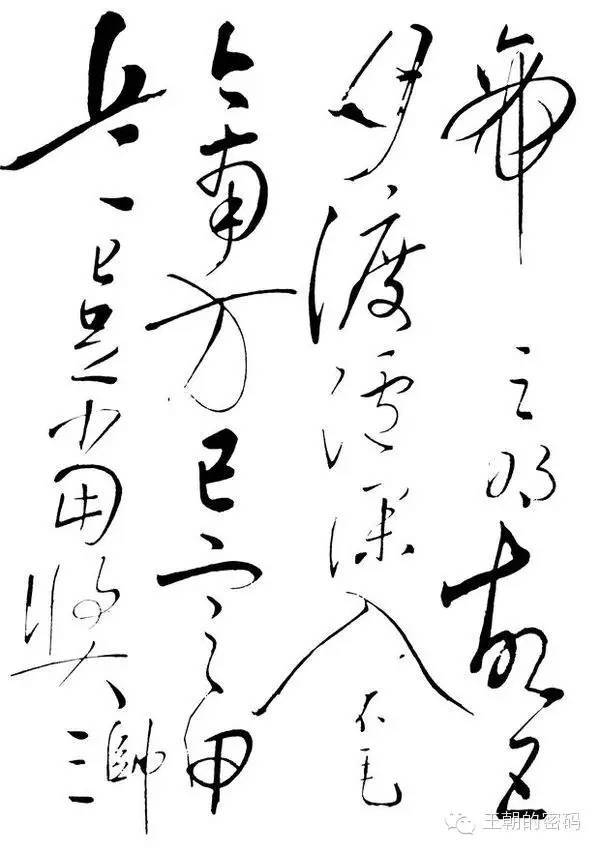 帝之明故五
月渡瀘深入不毛
今南方已定甲
兵已足當獎帥三
王朝的密码